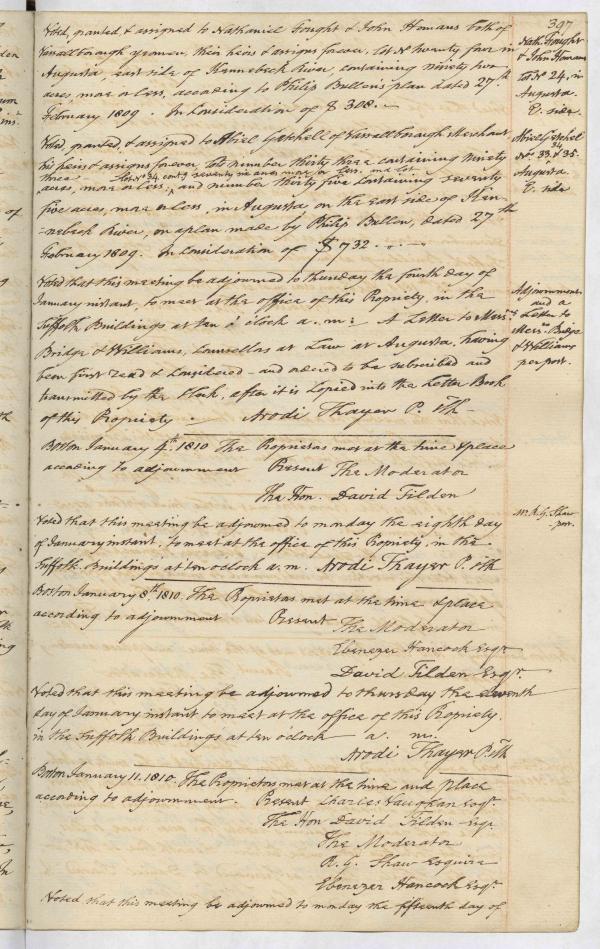 397
Voted, granted, & assigned to Nathaniel Fought & John Homans both of
Vassalborough yeomen, their heirs & assigns forever, lot No twenty four in
Augusta, east side of Kennebeck River, containing ninety two
acres, more or less, according to Philip Bullen's plan dated 27th
February 1809. In Consideration of $308.—
Nath. Fought
& John Homans
lot No 24. in
Augusta.
E. side.
Voted, granted, & assigned to Abiel Getchell of Vassalborough Merchant
his heirs & assigns forever lots number thirty three containing ninety
three lot No 34 contg seventy six acres more or less, and lot
acres, more or less, and number thirty five containing seventy
five acres, more or less, in Augusta on the east side of Ken
=nebeck River, on a plan made by Philip Bullen, dated 27th
February 1809. In Consideration of $732.
Abiel Getchel
34
No 33. & 35.
Augusta.
E. side
Voted that this meeting be adjourned to thursday the fourth day of
January instant, to meet at the office of this Propriety, in the
Suffolk Buildings at ten o'clock a.m: A Letter to Messrs
Bridge & Williams, Counsellors at Law at Augusta, having
been first read & Considered — and ordered to be subscribed and
transmitted by the Clerk, after it is Copied into the Letter Book
of this Propriety. Arodi Thayer P. Clk
Adjournment.
and a
Letter to
Messrs Bridge
& Williams
per post.
Boston January 4th 1810 The Proprietors met at the time & place
according to adjournment Present The Moderator
The Hon. David Tilden
Voted that this meeting be adjourned to monday the eighth day
of January instant, to meet at the office of this Propriety, in the
Suffolk Buildings at ten oclock a.m. Arodi Thayer P. Clk
Mr R. G. Shaw
Boston January 8th 1810. The Proprietors met at the time & place
according to adjournment Present The Moderator
Ebenezer Hancock Esqr.
David Tilden Esqr.
Voted that this meeting be adjourned to thursday the eleventh
day of January instant to meet at the office of this Propriety.
in the Suffolk Buildings at ten oclock a. m.
Arodi Thayer P. Clk
Boston January 11. 1810. The Proprietors met at the time and place
according to adjournment. Present Charles Vaughan Esqr.
The Hon David Tilden Esqr
The Moderator
R. G. Shaw Esquire
Ebenezer Hancock Esqr.
Voted that this meeting be adjourned to monday the fifteenth day of